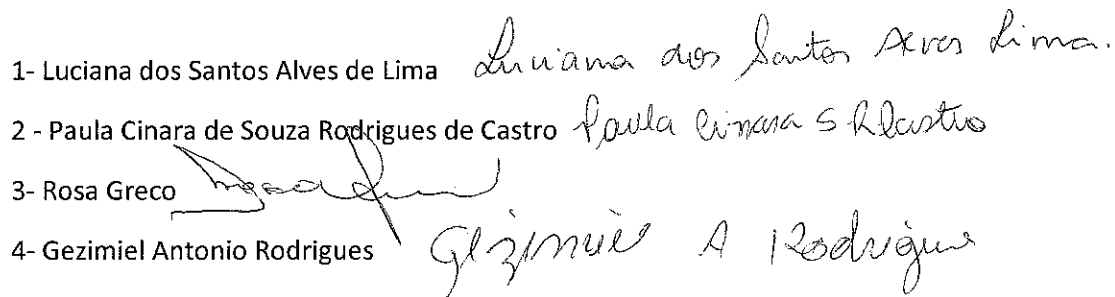 1- Luciana dos Santos Alves de Lima Luciana dos Santos Alves Lima.
2 - Paula Cinara de Souza Rodrigues de Castro Paula Cinara S R Castro
3- Rosa Greco Rosa
4- Gezimiel Antonio Rodrigues Gezimiel A Rodrigues